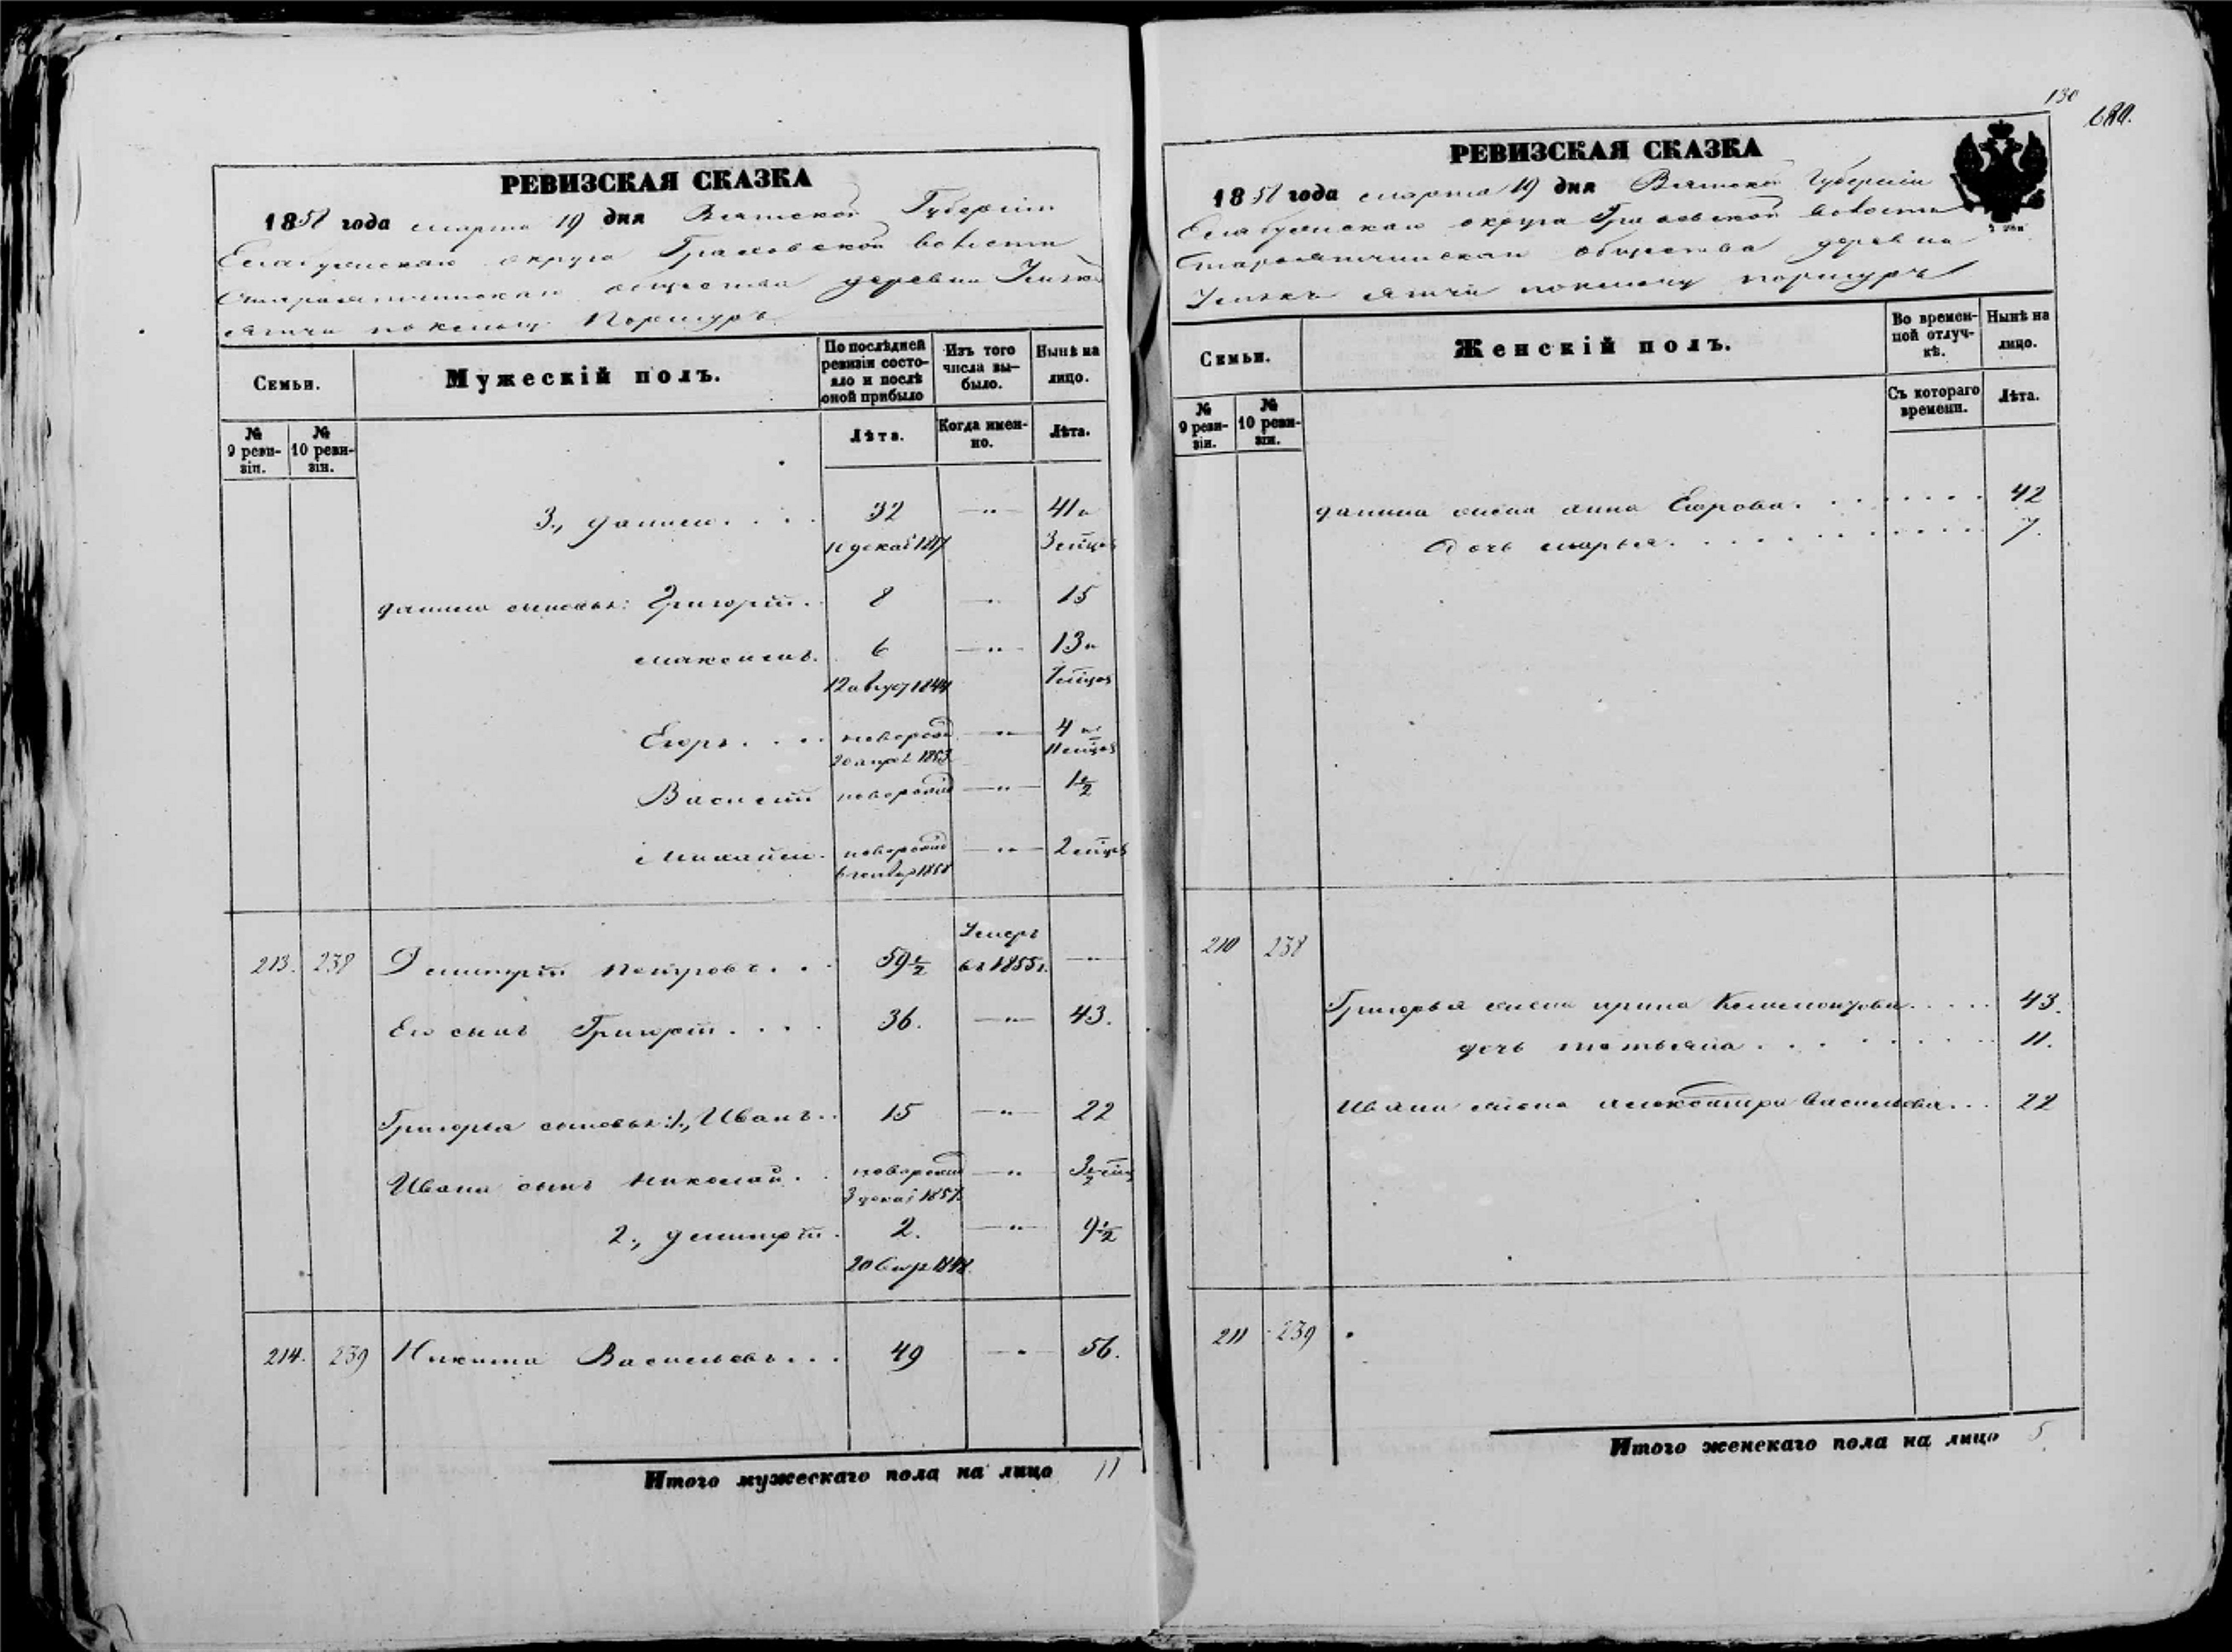 130
680.
РЕВИЗСКАЯ СКАЗКА
1858 года марта 19 дня Вятской Губернiи
Елабужскаго округа Граховской волости
общества деревни
Поршуръ
Семьи.
Мужескiй полъ.
По послѣдней ревизiи состояло и послѣ оной прибыло
Изъ того числа выбыло.
Нынѣ на лицо.
№ 9 ревизiи.
№ 10 ревизiи.
Лѣта.
Когда именно.
Лѣта.
3., Данило . . . . 32 —"— 41 и
3 мѣцов
Данила сыновья: Григорiй . 8 —"— 15
Максимъ . 6 —"— 13 и
12 август 1844
Егоръ . . . . новорожд —"— 4 и
20 апрел 1853 11 мѣцов
Василiй новорожд —"— 1½
Михайло . новорожд —"— 2 мѣцов
6 генвар 1858
213. 238 Дмитрiй Петровъ . . . 59½ Умеръ въ 1855 г. —"—
Его сынъ Григорiй . . . . 36. —"— 43.
Григорья сыновья: 1., Иванъ . . 15 —"— 22
Ивана сынъ Николай . . новорожд —"— 3½ мѣц
3 декаб 1857
2., Дмитрiй . 2. —"— 9½
214. 239 Никита Васильевъ . . . 49 —"— 56.
Итого мужескаго пола на лицо 11
РЕВИЗСКАЯ СКАЗКА
1858 года марта 19 дня Вятской Губернiи
Елабужскаго округа Граховской волости
общества деревни
Поршуръ
Семьи.
Женскiй полъ.
Во временной отлучкѣ.
Нынѣ на лицо.
№ 9 ревизiи.
№ 10 ревизiи.
Съ котораго времени.
Лѣта.
Данила жена Анна Егорова . . . . . . . 42
Дочь Марья . . . . . . . . . . . 7.
210 238
Григорья жена Ирина . . . . . 43.
дочь Татьяна . . . . . . . . 11.
Ивана жена Александра Васильева . . . 22
211 239
Итого женскаго пола на лицо 5